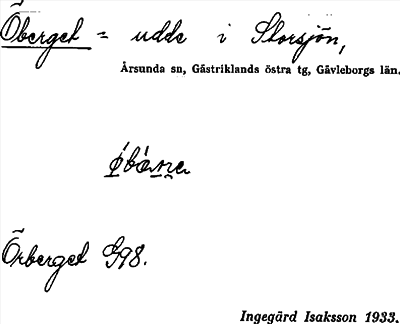 Öberget = udde i Storsjön,
Årsunda sn, Gästriklands östra tg, Gävleborgs län.
Örberget G98.
Ingegärd Isaksson 1933.